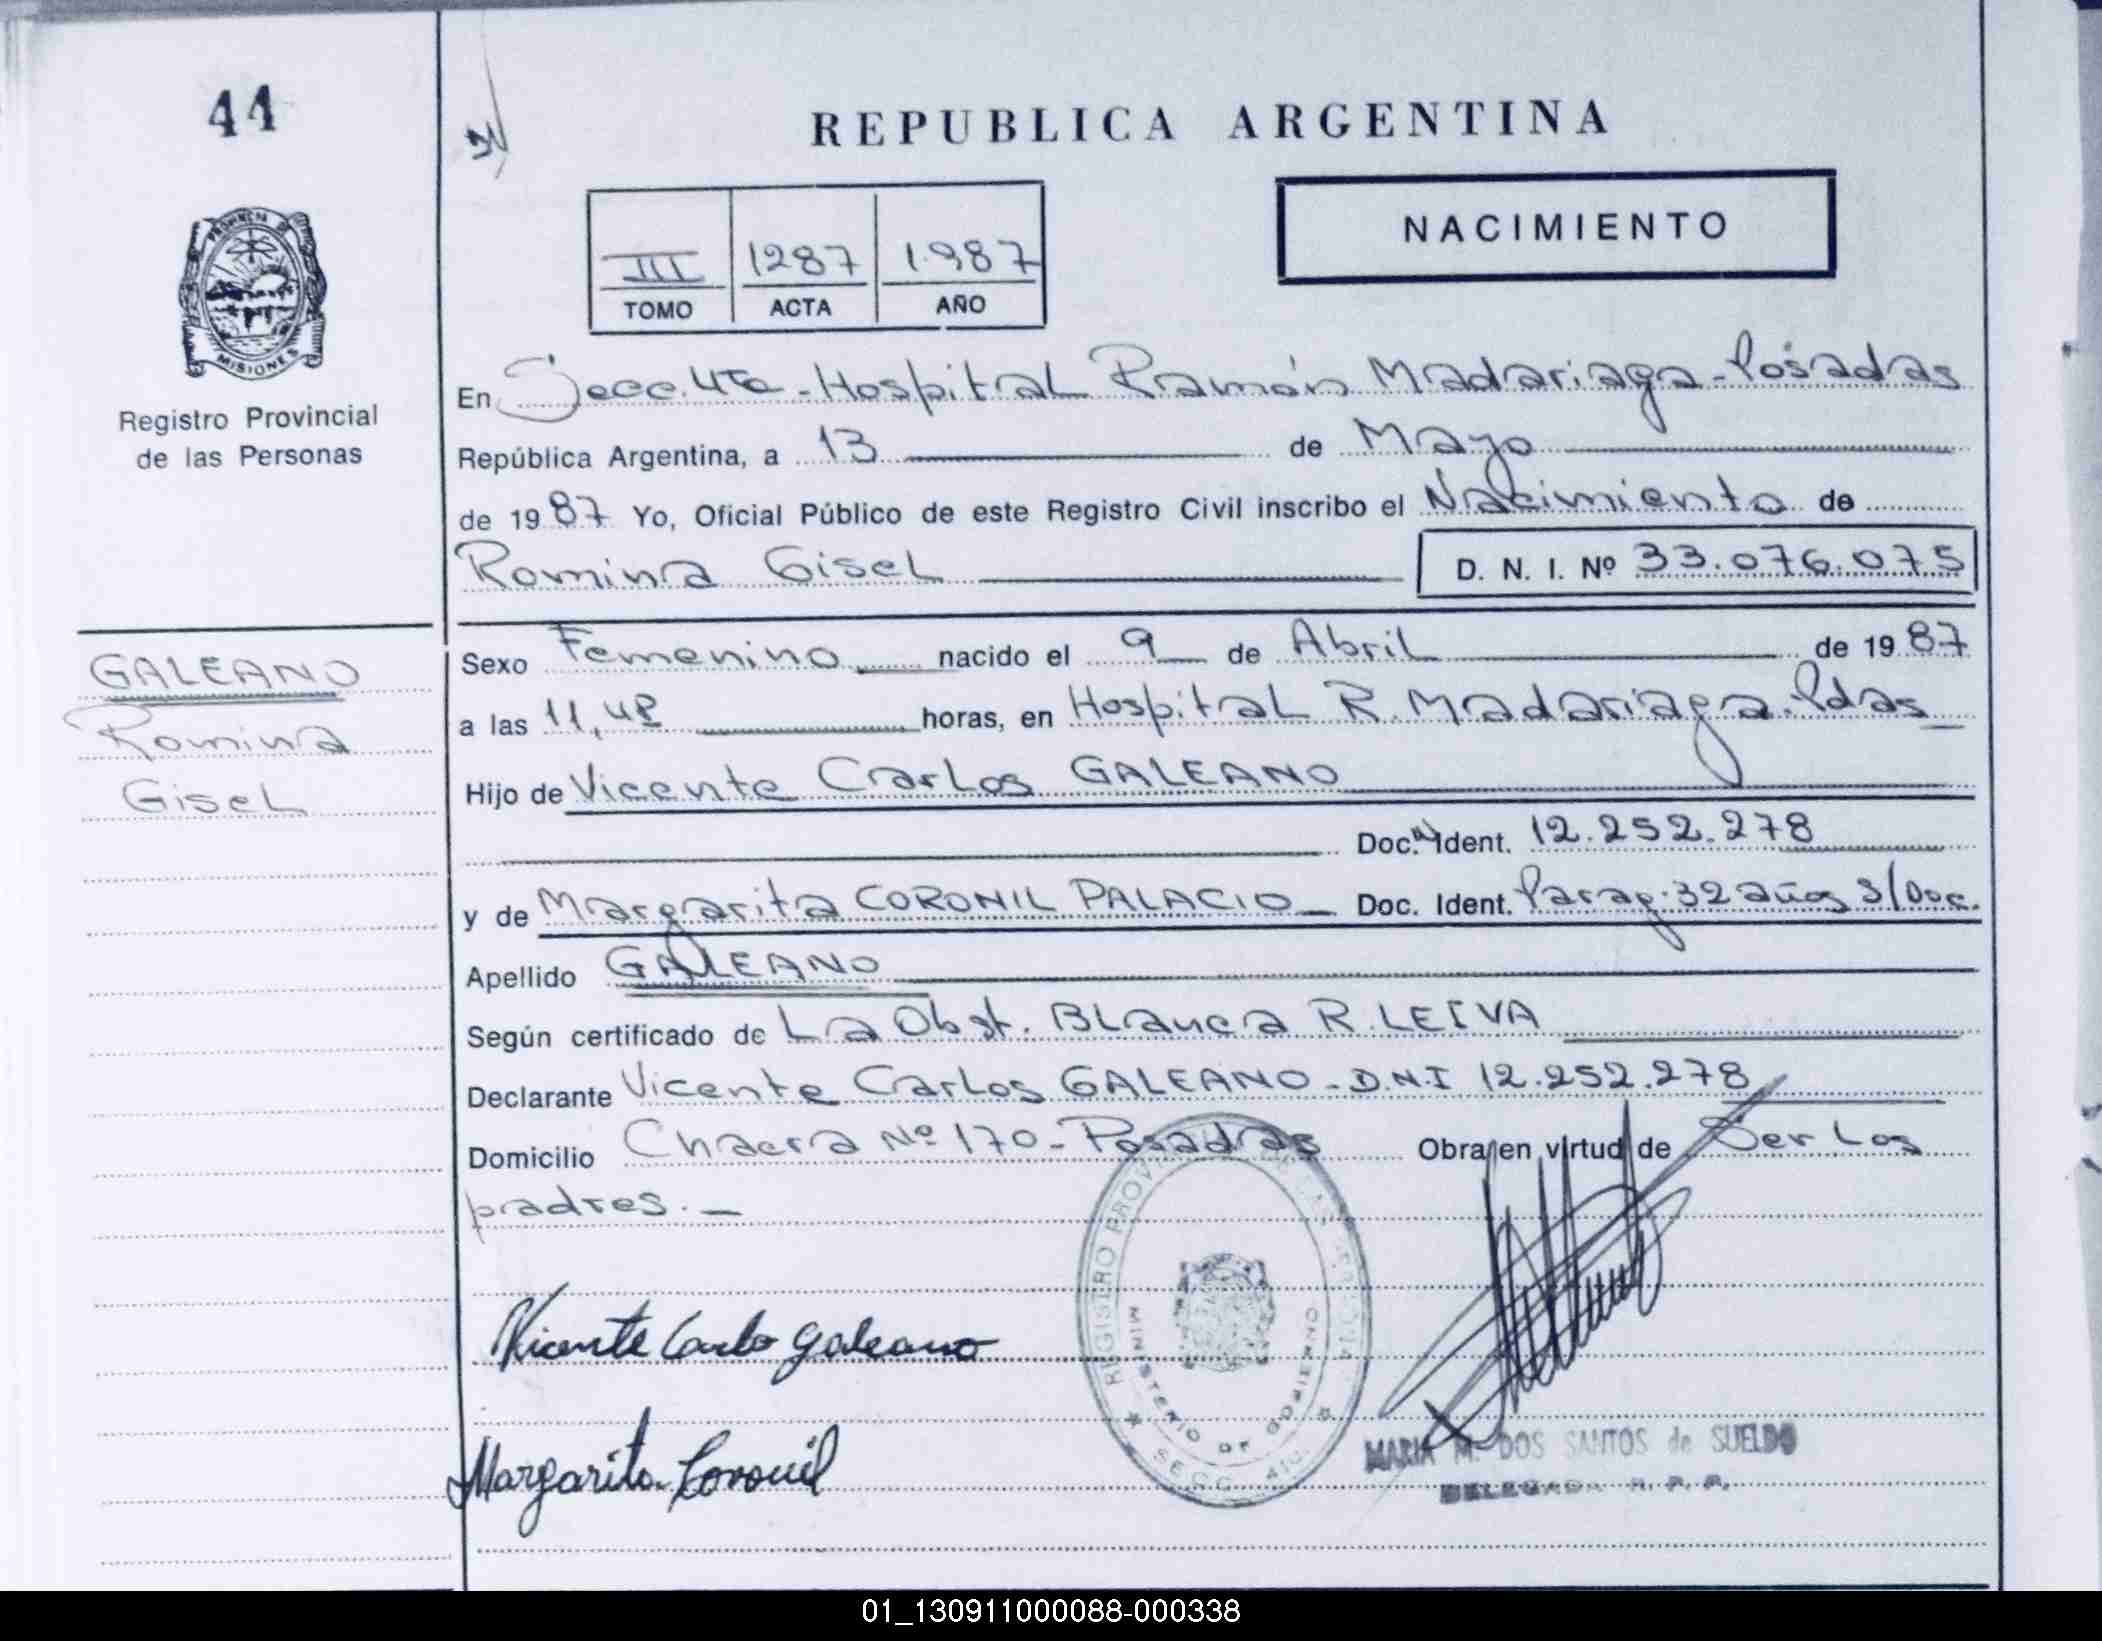 44
REPUBLICA ARGENTINA
NACIMIENTO
III 1287 1.987
TOMO ACTA AÑO
PROVINCIA DE
MISIONES
Registro Provincial
de las Personas
En Secc. 4ta - Hospital Ramón Madariaga - Posadas
República Argentina, a 13 de Mayo
de 1987 Yo, Oficial Público de este Registro Civil inscribo el Nacimiento de
Romina Gisel D. N. I. Nº 33.076.075
GALEANO
Romina
Gisel
Sexo Femenino nacido el 9 de Abril de 1987
a las 11, horas, en Hospital R. Madariaga. Pdas
Hijo de Vicente Carlos GALEANO
Doc. Ident. 12.252.278
y de Margarita CORONIL PALACIO Doc. Ident. Parag. 32 años s/Doc.
Apellido GALEANO
Según certificado de La Obst. Blanca R. LEIVA
Declarante Vicente Carlos GALEANO - D.N.I 12.252.278
Domicilio Chacra Nº 170 - Posadas Obra en virtud de Ser Los
padres. -
Vicente Carlo Galeano
Margarita Coronil
REGISTRO PROV DE LAS PERSONAS
MINISTERIO DE GOBIERNO
SECC. 4ta.
MARIA M. DOS SANTOS de SUELDO
DELEGADA R. P. P.
01_130911000088-000338